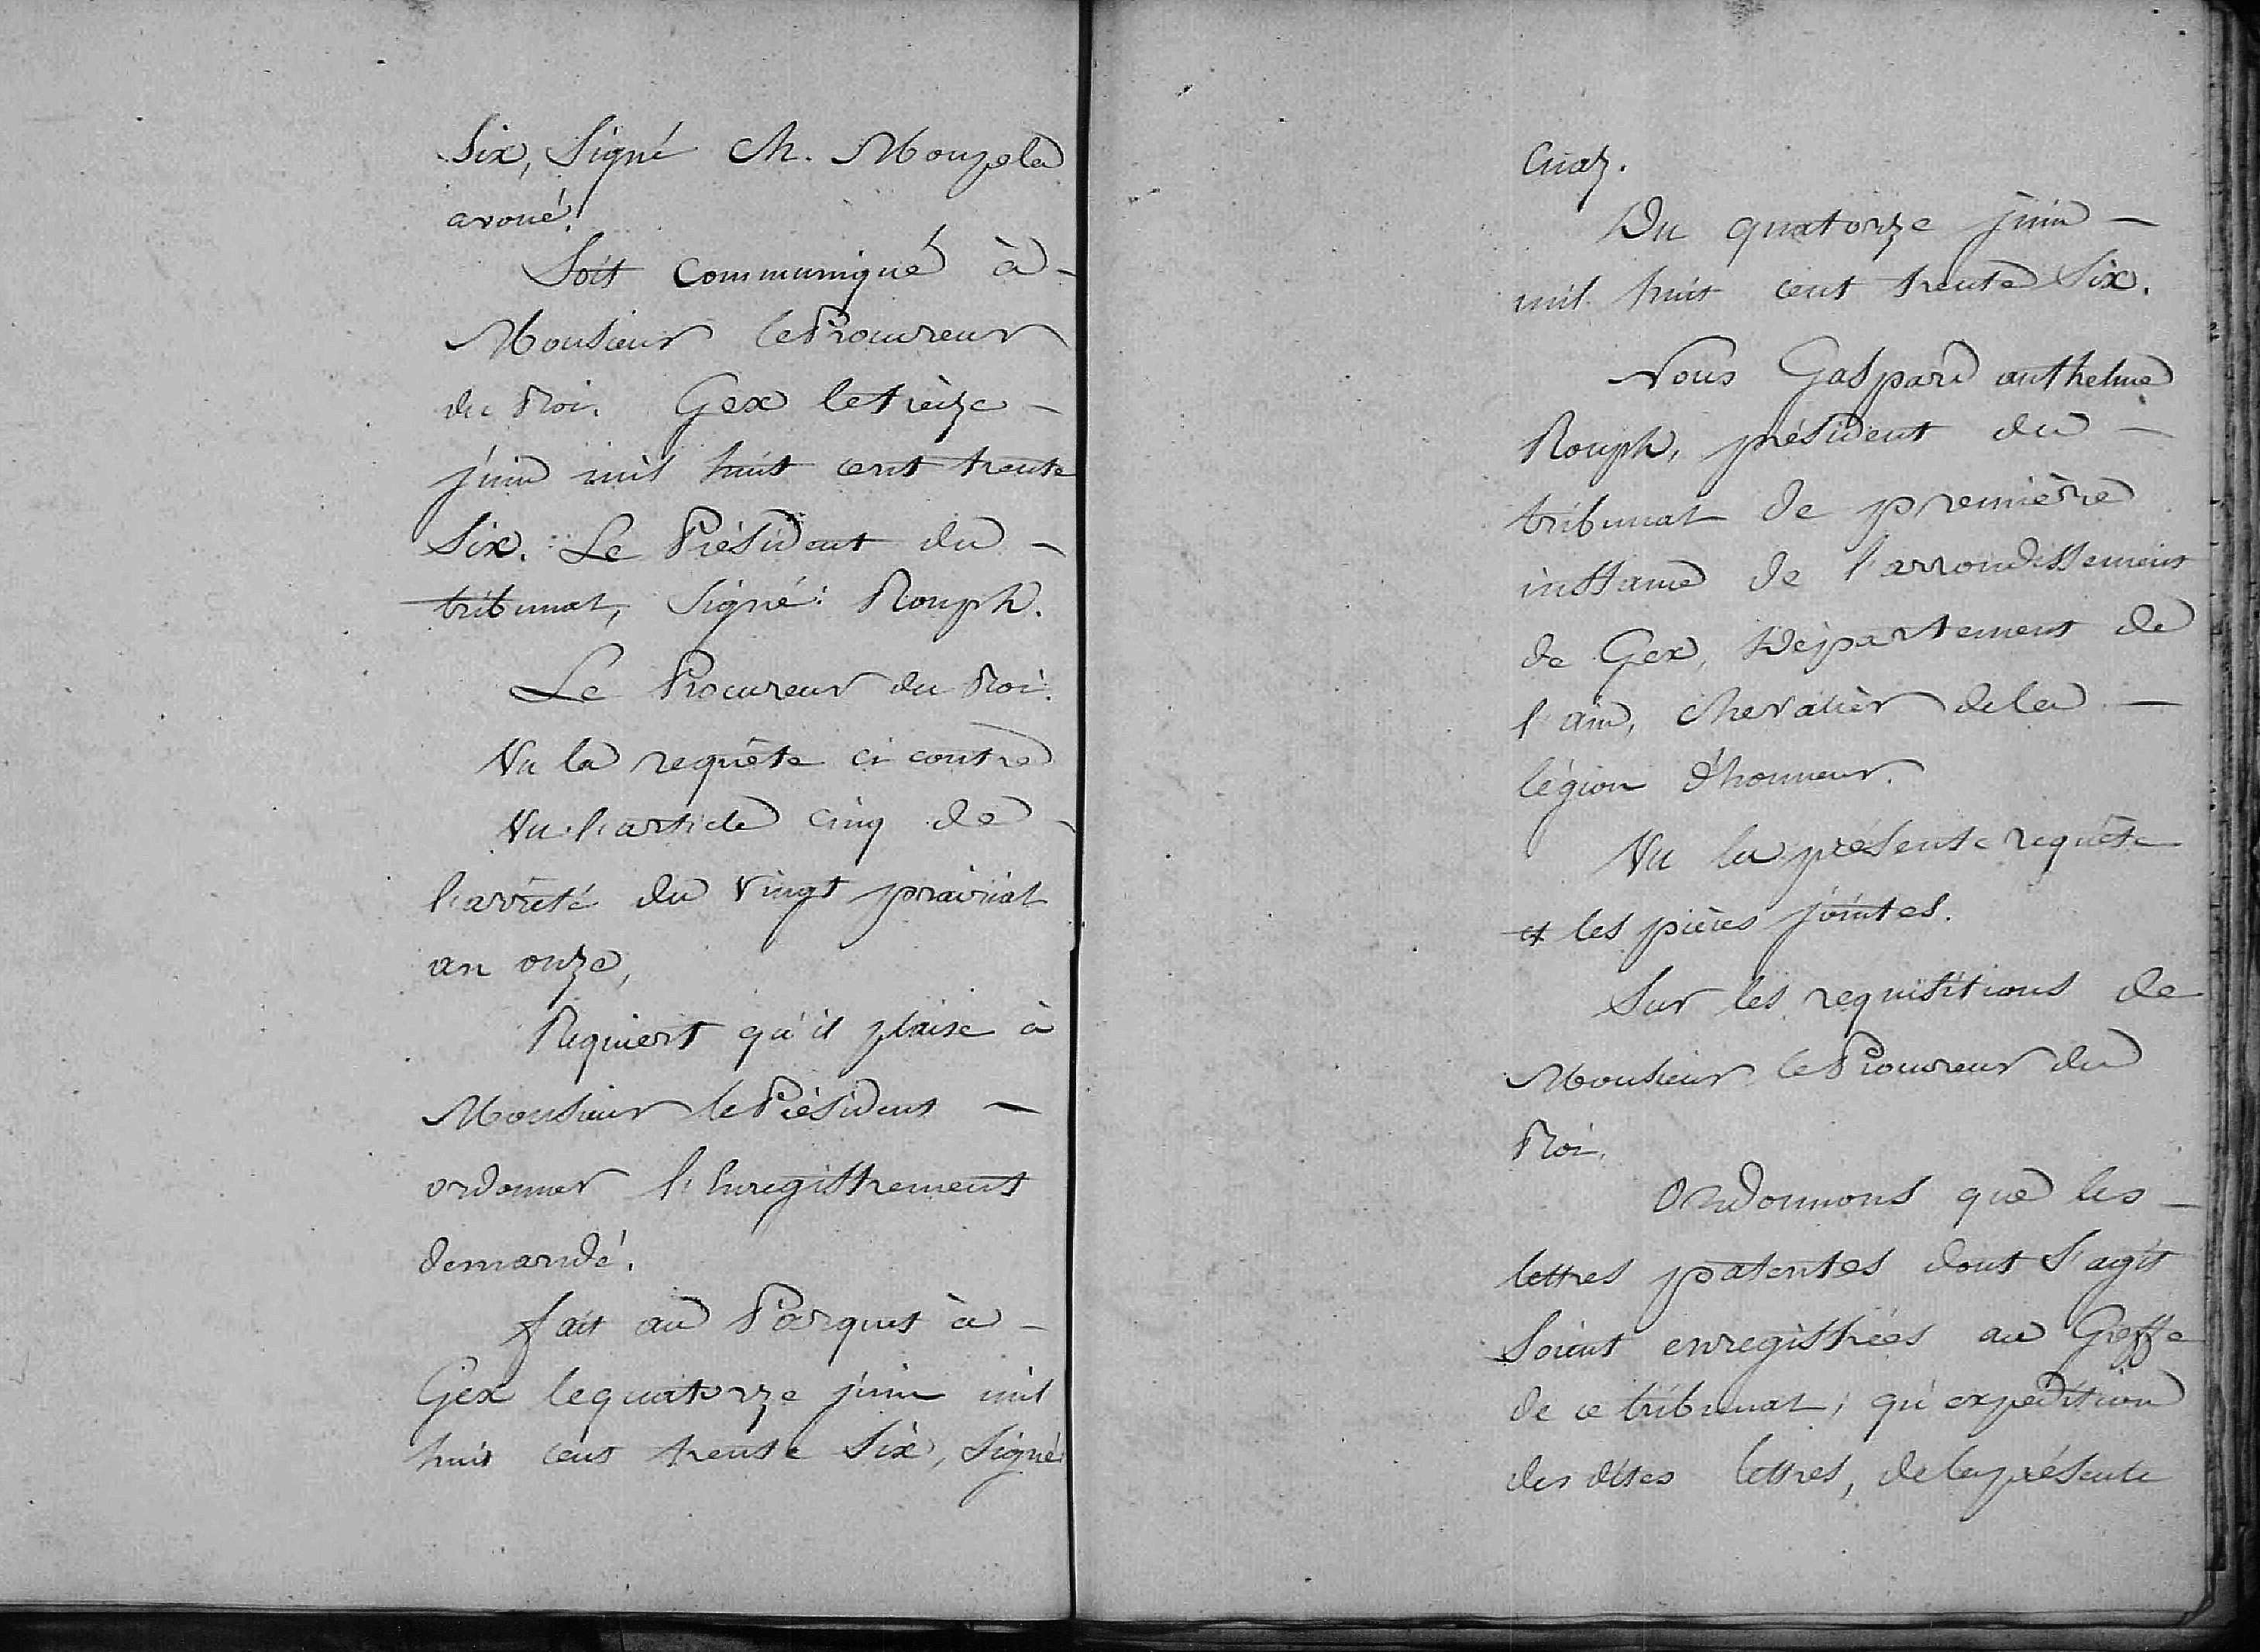 Six, Signé Ch. Mouzela
avoué.
Soit communiqué à -
Monsieur le Procureur
du Roi. Gex le trèize -
juin mil huit cent trente
Six. Le Président du -
tribunal, Signé: Rouph.
Le Procureur du Roi.
Vu la requête ci contre
Vu l'article cinq de -
l'arrêté du vingt prairial
an onze,
Requiert qu'il plaise à
Monsieur le Président -
ordonner l'Enregistrement
demandé.
fait au Parquet à -
Gex le quatorze juin mil
huit cent trente Six, Signé
Cuaz.
Du quatorze juin -
mil huit cent trente Six.
Nous Gaspard anthelme
Rouph, président du -
tribunal de première
instance de l'arrondissement
de Gex, Département de
l'ain, chevalier de la -
légion d'honneur.
Vu la présente requête
et les pièces jointes.
Sur les requisitions de
Monsieur le Procureur du
Roi.
Ordonnons que les -
lettres patentes dont S'agit
Soient enregistrées au Greffe
de ce tribunal; qu'expédition
des dites lettres, de la présente